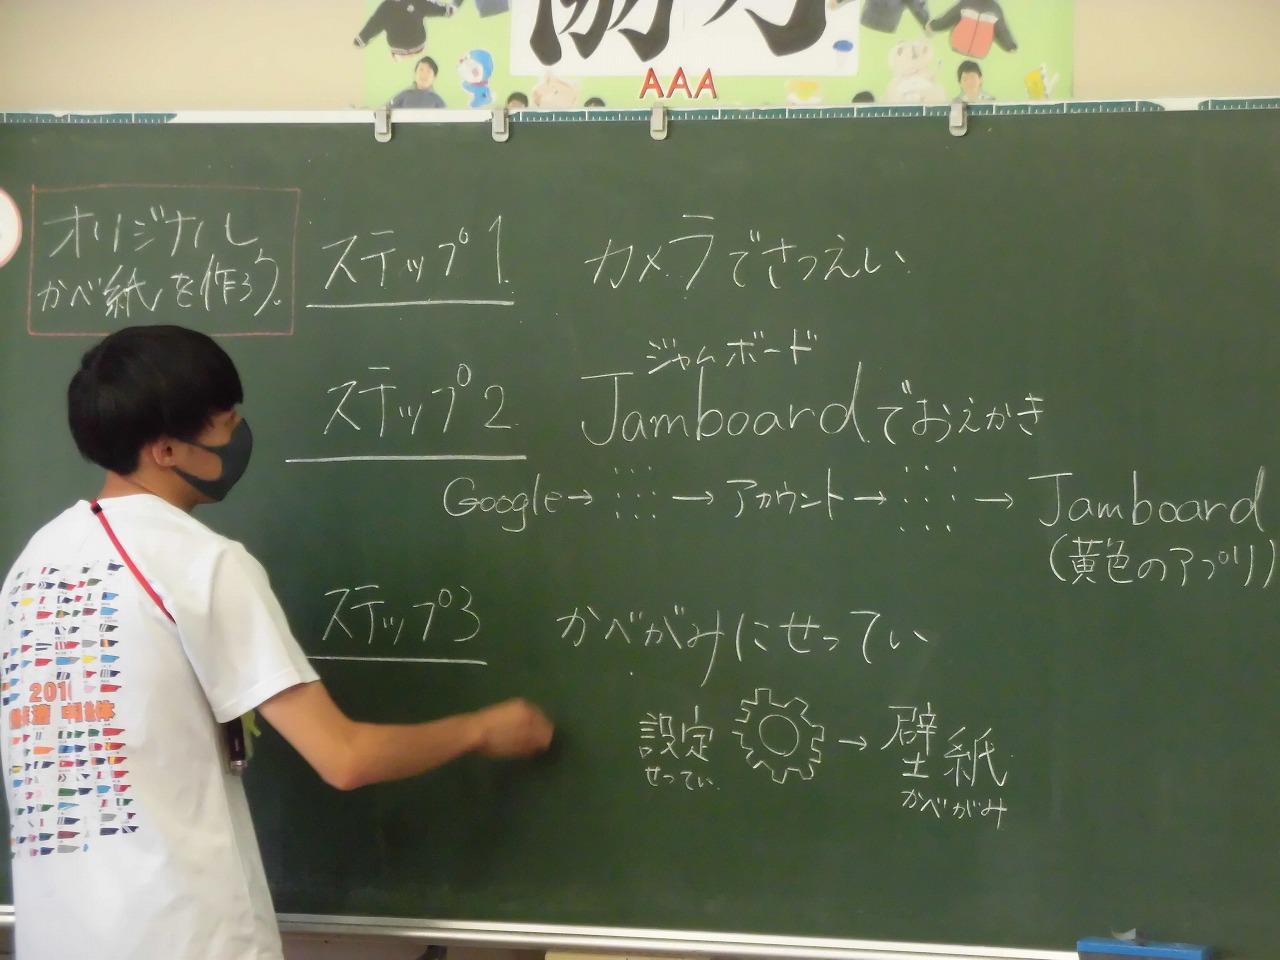 AAA
オリジナル
かべ紙を作ろう。
ステップ1
カメラでさつえい
ステップ2
ジャムボード
Jamboardでおえかき
Google→ → アカウント → → Jamboard
(黄色のアプリ)
ステップ3
かべがみにせってい
設定 → 壁紙
せってい かべがみ